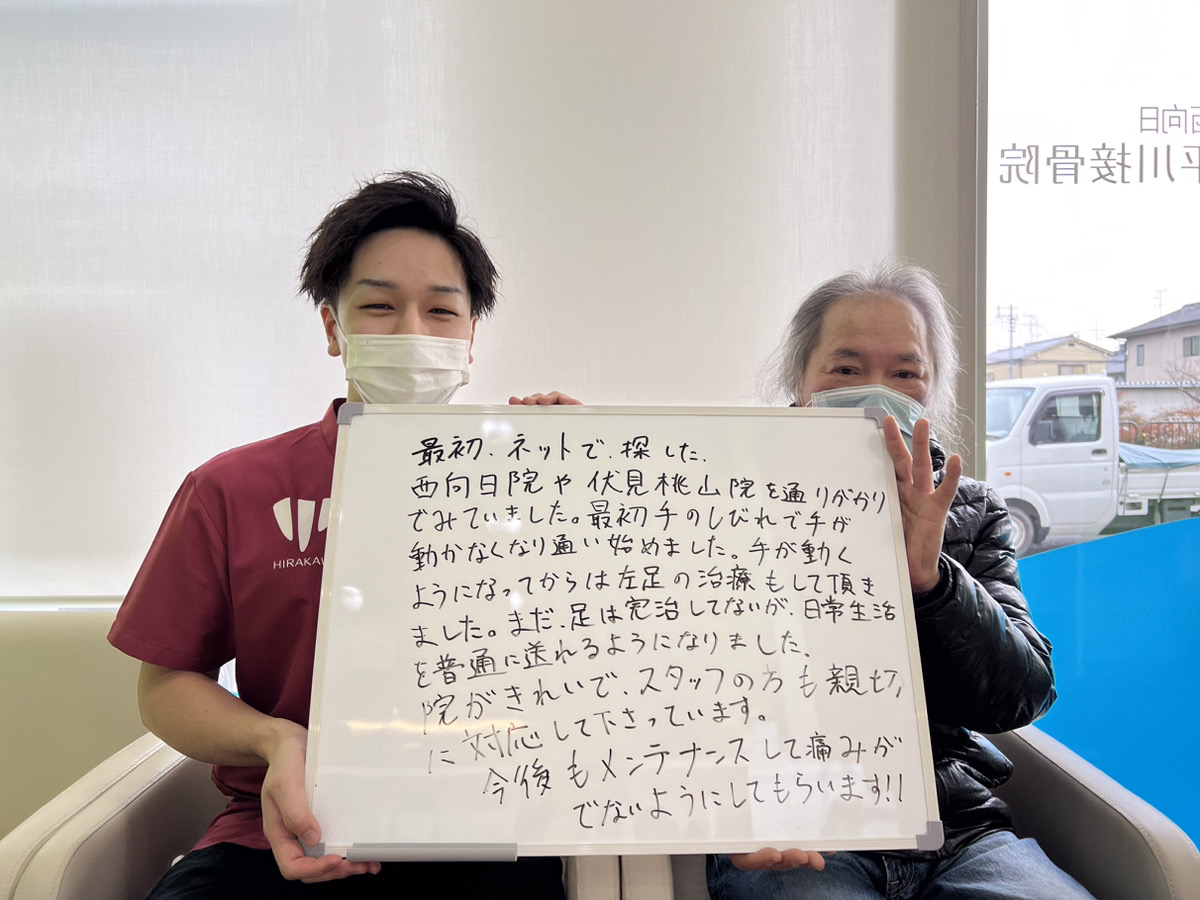 最初、ネットで、探した、
西向日院や伏見桃山院を通りがかり
でみていました。最初手のしびれで手が
動かなくなり通い始めました。手が動く
ようになってからは左足の治療もして頂き
ました。まだ、足は完治してないが、日常生活
を普通に送れるようになりました、
院がきれいで、スタッフの方も親切
に対応して下さっています。
今後もメンテナンスして痛みが
でないようにしてもらいます!!
HIRAKA
向日
平川接骨院